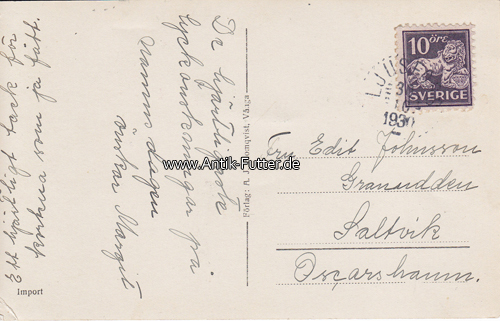 De hjärtligaste
lyckönskningar på
namnsdagen
önskar Margit
Ett hjärtligt tack för
som ja fått.
Import
Förlag: A. J. Vånga
www.Antik-Futter.de
10 ÖRE
SVERIGE
1930
Fru Edit Johnsson
Granudden
Saltvik
Oscarshamn.